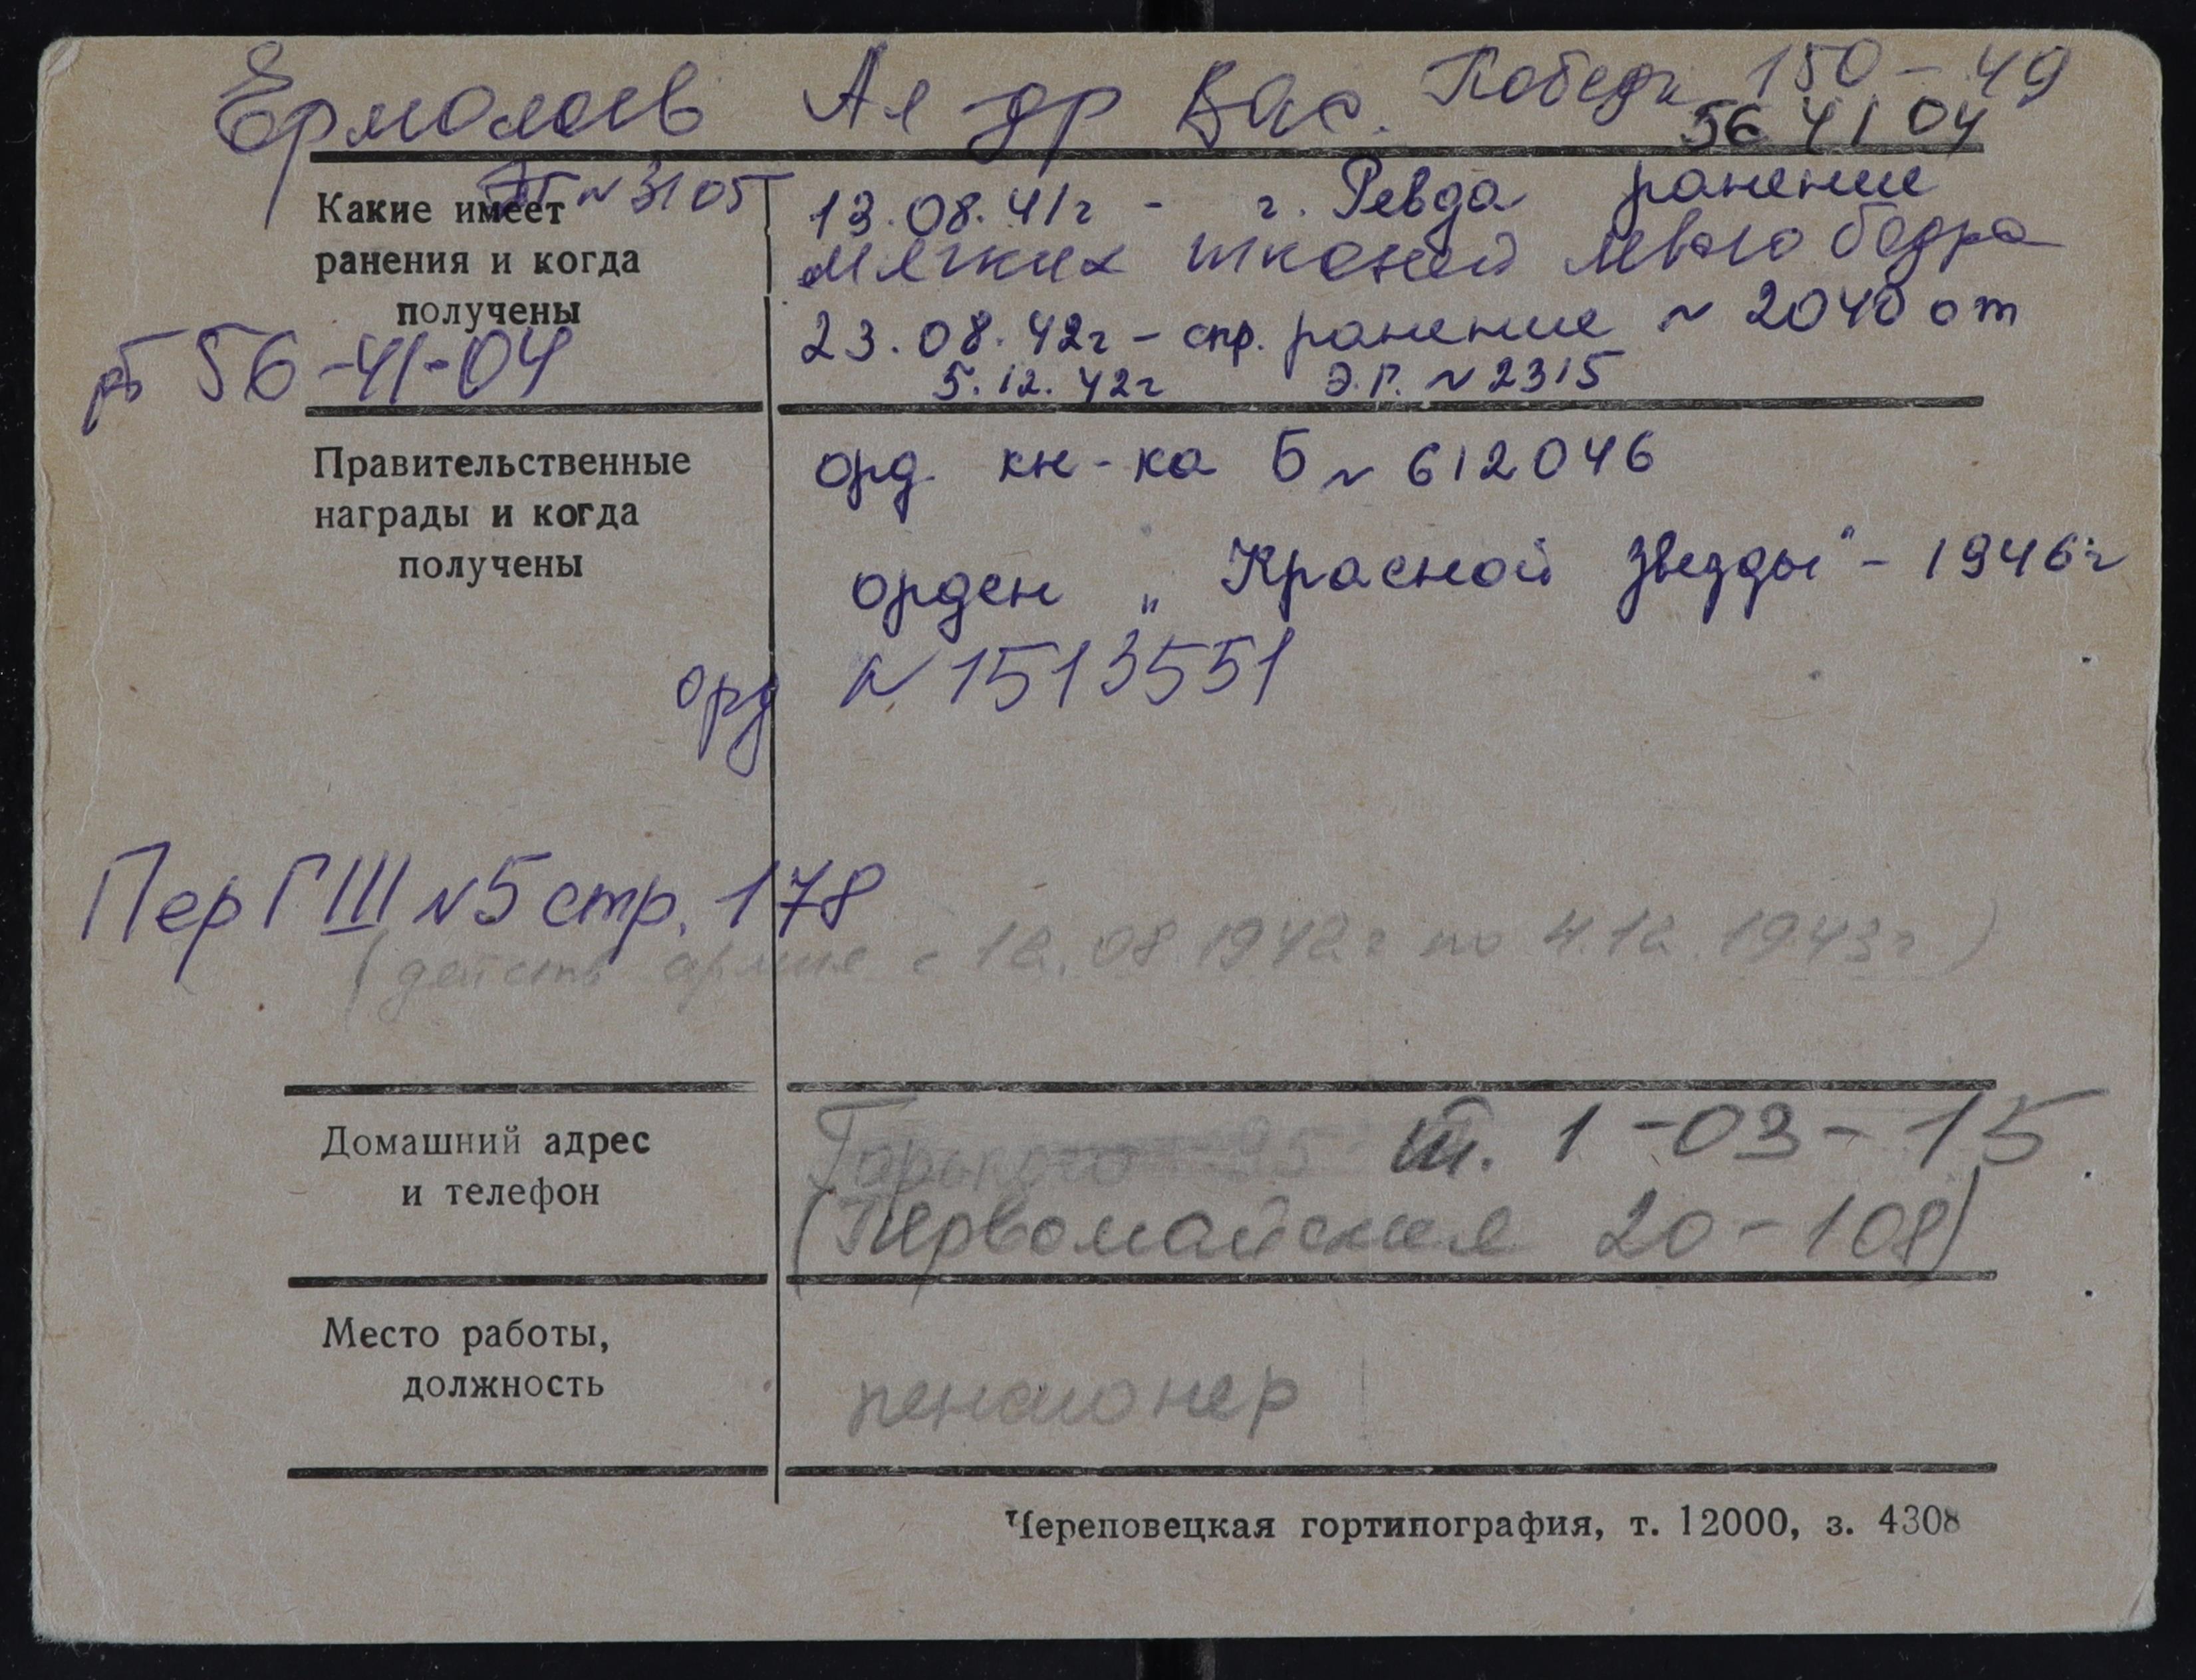 Ермолаев Ал-др Вас. Победы 150-49
56 41 04
№ 3105
Какие имеет
ранения и когда
получены
13.08.41г - г. Ревда ранение
мягких тканей левого бедра
23.08.42г - спр. ранение № 2040 от
5.12.42г Э.Г. № 2315
рт 56-41-04
Правительственные
награды и когда
получены
орд. кр-ка Б № 612046
орден „Красной звезды" - 1946г
орд № 1513551
Пер Г III №5 стр. 178
(действ армия с 12.08.1942г по 4.12.1943г)
Домашний адрес
и телефон
Горького 95 т. 1-03-15
(Первомайская 20-108)
Место работы,
должность
пенсионер
Череповецкая гортипография, т. 12000, з. 4308